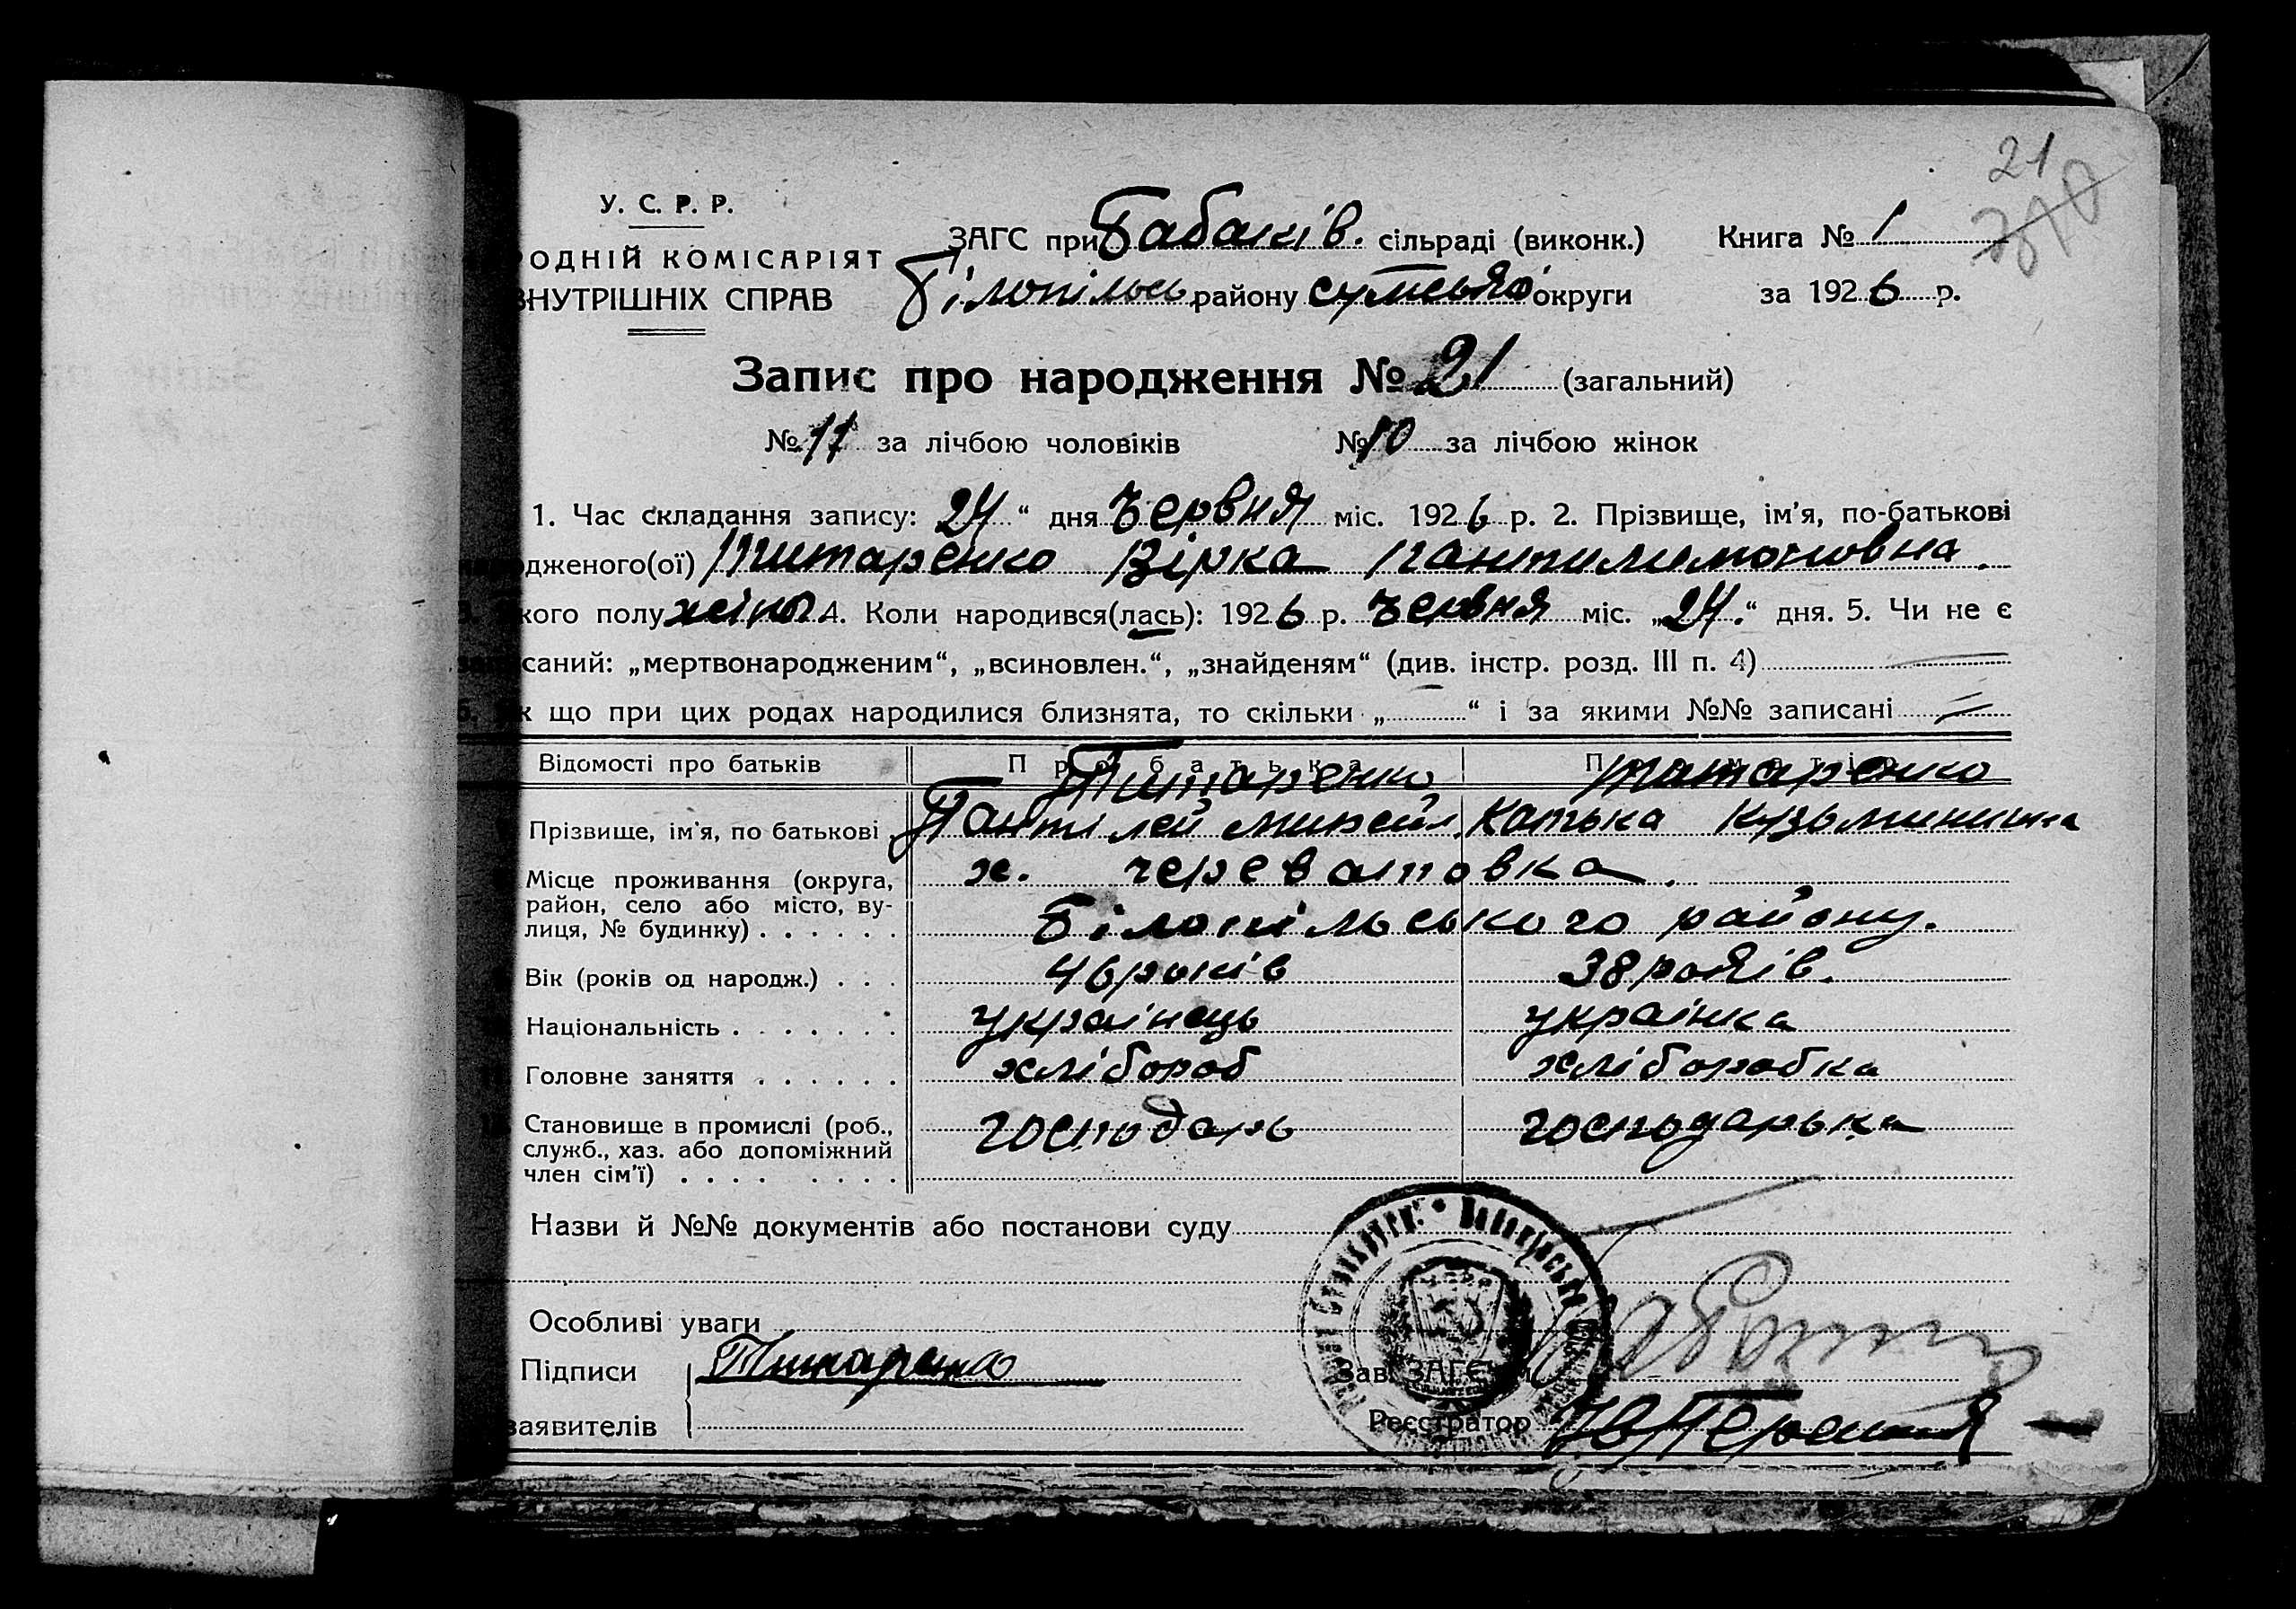 21
У. С. Р. Р.
РОДНІЙ КОМІСАРІЯТ
ВНУТРІШНІХ СПРАВ
ЗАГС при Бабаків. сільраді (виконк.) Книга № 1
Білопільськ району Сумської округи за 1926 р.
Запис про народження № 21 (загальний)
№ 11 за лічбою чоловіків № 10 за лічбою жінок
1. Час складання запису: 24 “ дня Червня міс. 1926 р. 2. Прізвище, ім'я, по-батькові
дженого(ої) Титаренко Вірка Пантилимоновна.
кого полу жіноч 4. Коли народився(лась): 1926 р. Червня міс. „24.“ дня. 5. Чи не є
саний: „мертвонародженим“, „всиновлен.“, „знайденям“ (див. інстр. розд. III п. 4)
6. Як що при цих родах народилися близнята, то скільки „ “ і за якими №№ записані
Відомості про батьків Про батька Про матір
Титаренко Титаренко
Прізвище, ім'я, по батькові Пантілей Михайл. Катька Кузьминишна
Місце проживання (округа, х. Череватовка.
район, село або місто, ву-
лиця, № будинку) Білопільського району.
Вік (років од народж.) 46 років 38 років.
Національність українець українка
Головне заняття хлібороб хліборобка
Становище в промислі (роб., господарь господарька
служб., хаз. або допоміжний
член сім'ї)
Назви й №№ документів або постанови суду
Особливі уваги
Підписи Титаренко Зав. ЗАГС'ом
заявителів Реєстратор